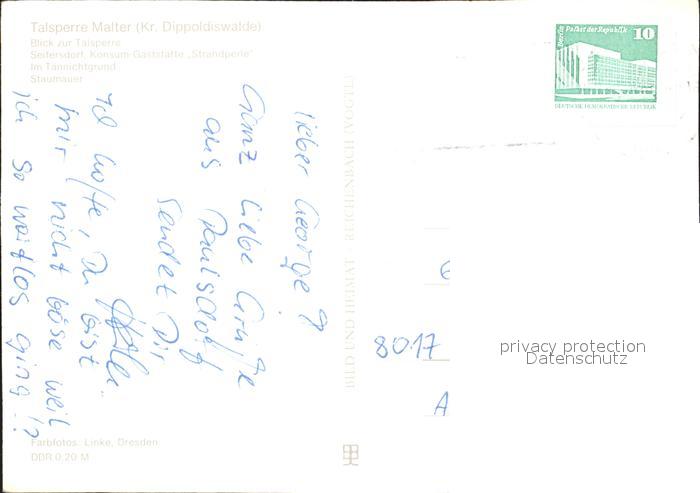 Talsperre Malter (Kr. Dippoldiswalde)
Blick zur Talsperre
Seifersdorf, Konsum-Gaststätte „Strandperle"
Im Tännichtgrund
Staumauer
Lieber George!
Ganz liebe Grüße
aus Paulsdorf
sendet Dir
Ich hoffe, Du bist
mir nicht böse weil
ich so wortlos ging!?
Farbfotos: Linke, Dresden
DDR 0,20 M
BILD UND HEIMAT REICHENBACH (VOGTL)
Berlin Palast der Republik
10
DEUTSCHE DEMOKRATISCHE REPUBLIK
8017
A
privacy protection
Datenschutz